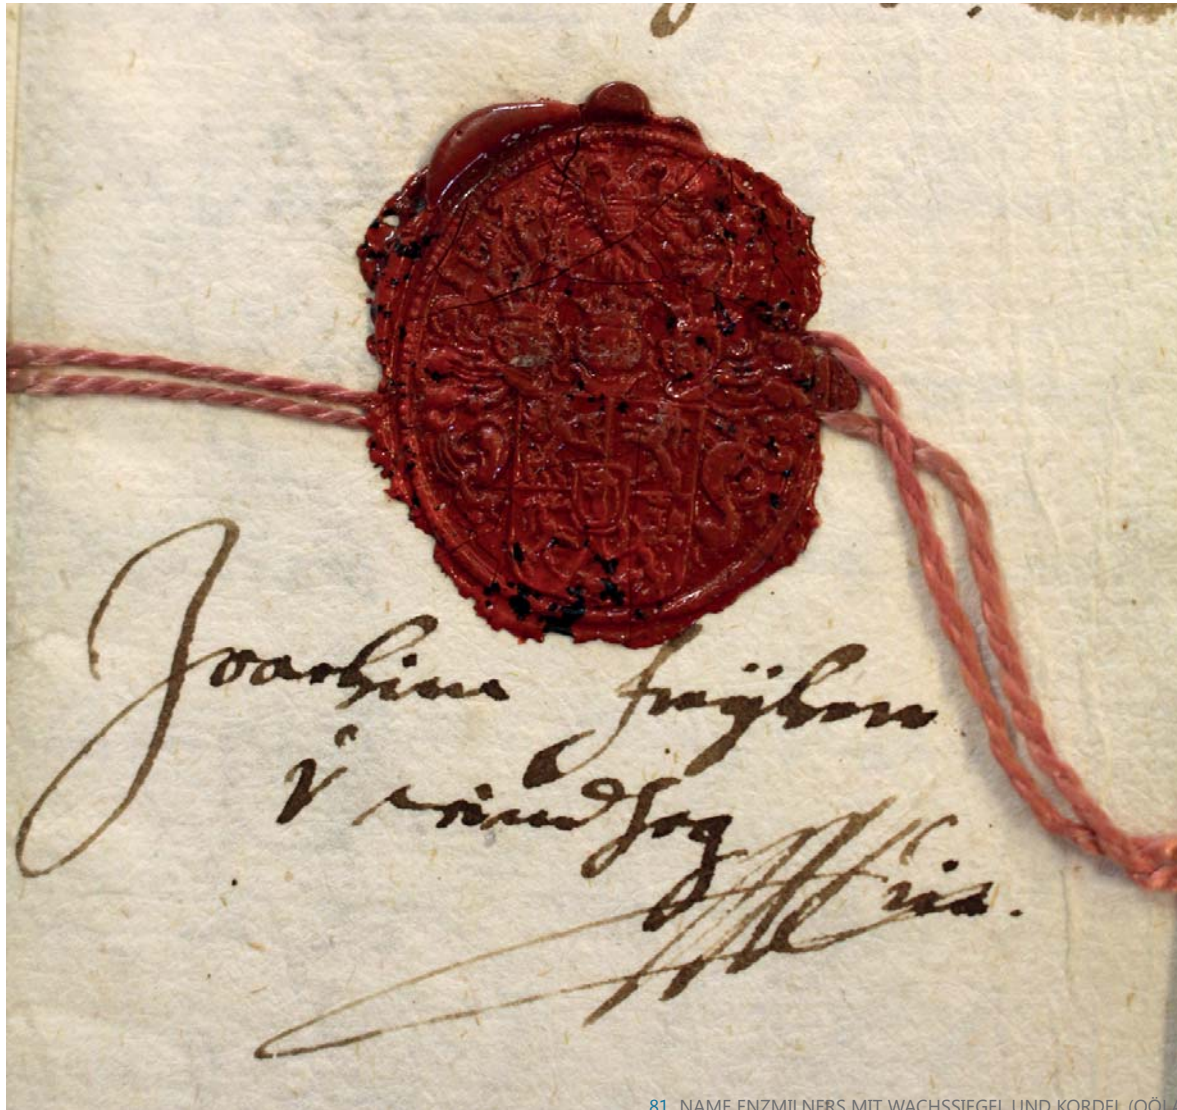 Joachim freÿherr
v windhag
81 NAME ENZMILNERS MIT WACHSSIEGEL UND KORDEL (OÖLA